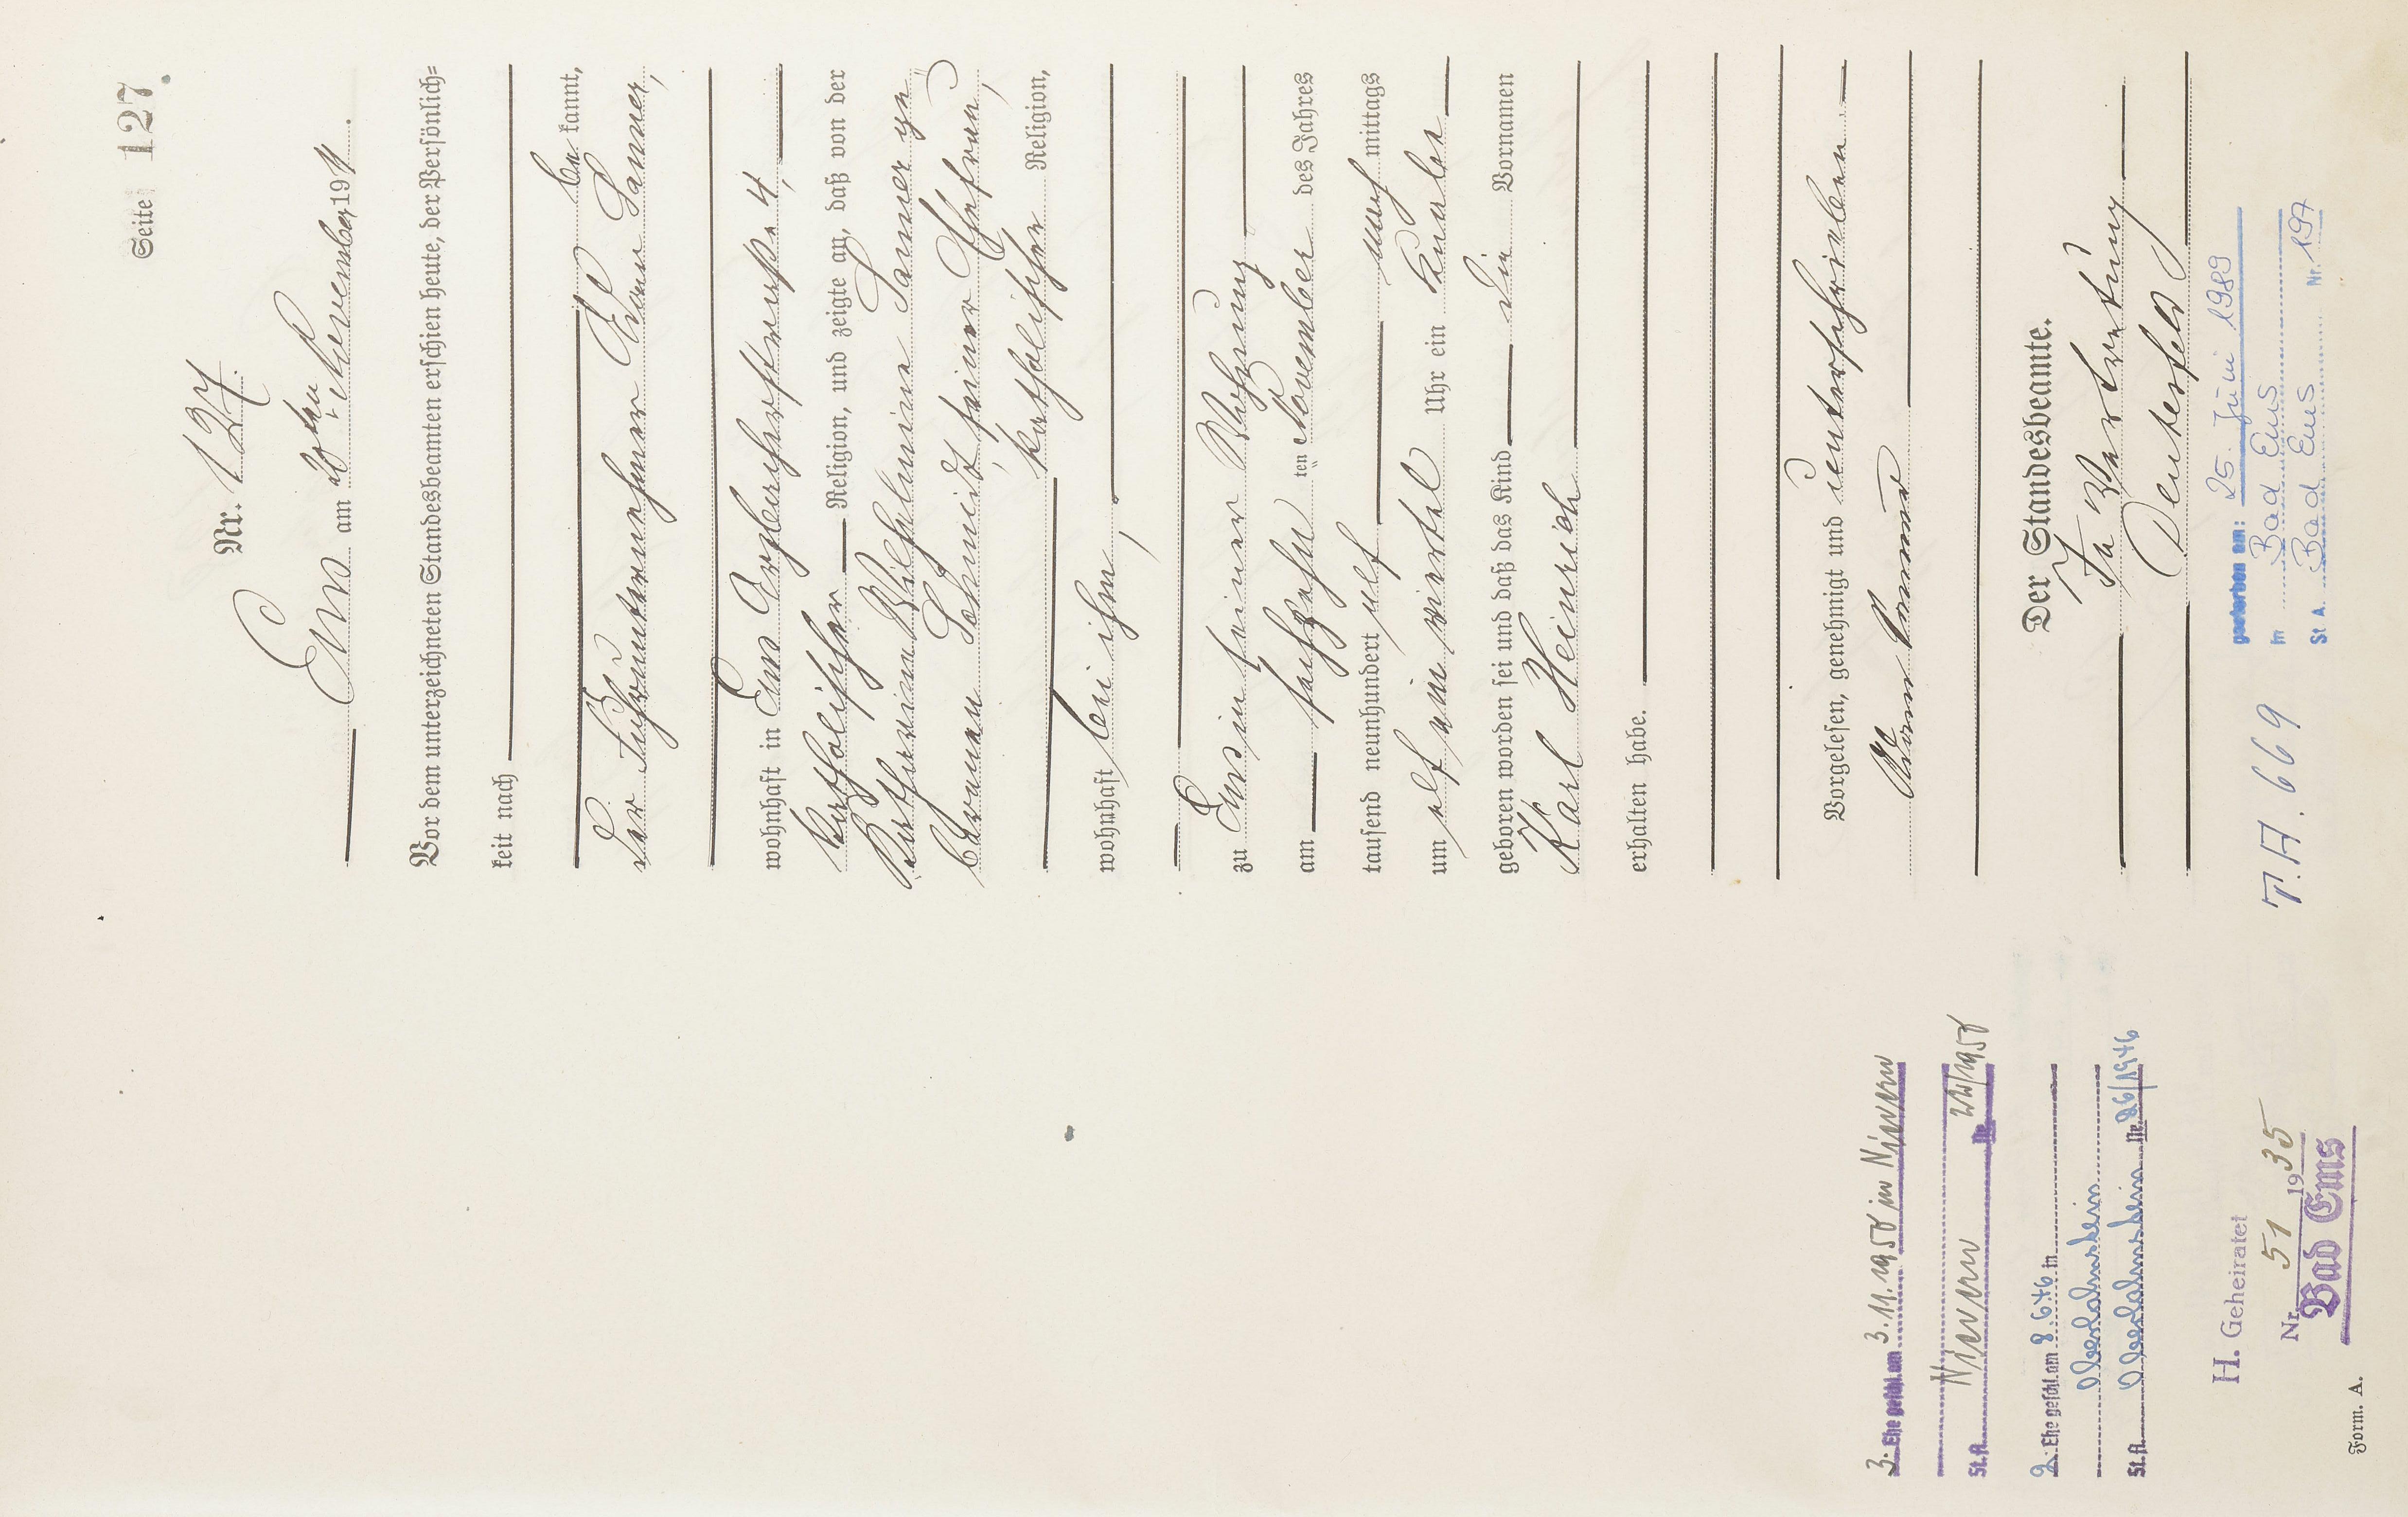 Seite 127.
Nr. 127.
Ems am 20ten November 1911.
Vor dem unterzeichneten Standesbeamten erschien heute, der Persönlich=
keit nach
be kannt,
der Fuhrunternehmer Adam Sanner,
wohnhaft in Ems Arzbacherstraße 4,
katholischer Religion, und zeigte an, daß von der
Katharina Wilhelmine Sanner ge
borenen Schmidt, seiner Ehefrau,
katholischer Religion,
wohnhaft bei ihm,
zu Ems in seiner Wohnung
am fünfzehn ten November des Jahres
tausend neunhundert elf nach mittags
um elf ein viertel Uhr ein Knabe
geboren worden sei und daß das Kind die Vornamen
Karl Heinrich
erhalten habe.
Vorgelesen, genehmigt und unterschrieben
Adam Sanner
Der Standesbeamte.
In Vertretung
gestorben am: 25. Juni 1989
in Bad Ems
St A. Bad Ems Nr. 197
T.A. 669
3. Ehe geschl. am 3.11.1950 in Nievern
St.A. Nievern Nr. 22/1950
2. Ehe geschl. am 8.6.46 in
Oberlahnstein
St.A. Oberlahnstein Nr. 26/1946
H. Geheiratet
Nr. 51 1935
Bad Ems
Form. A.